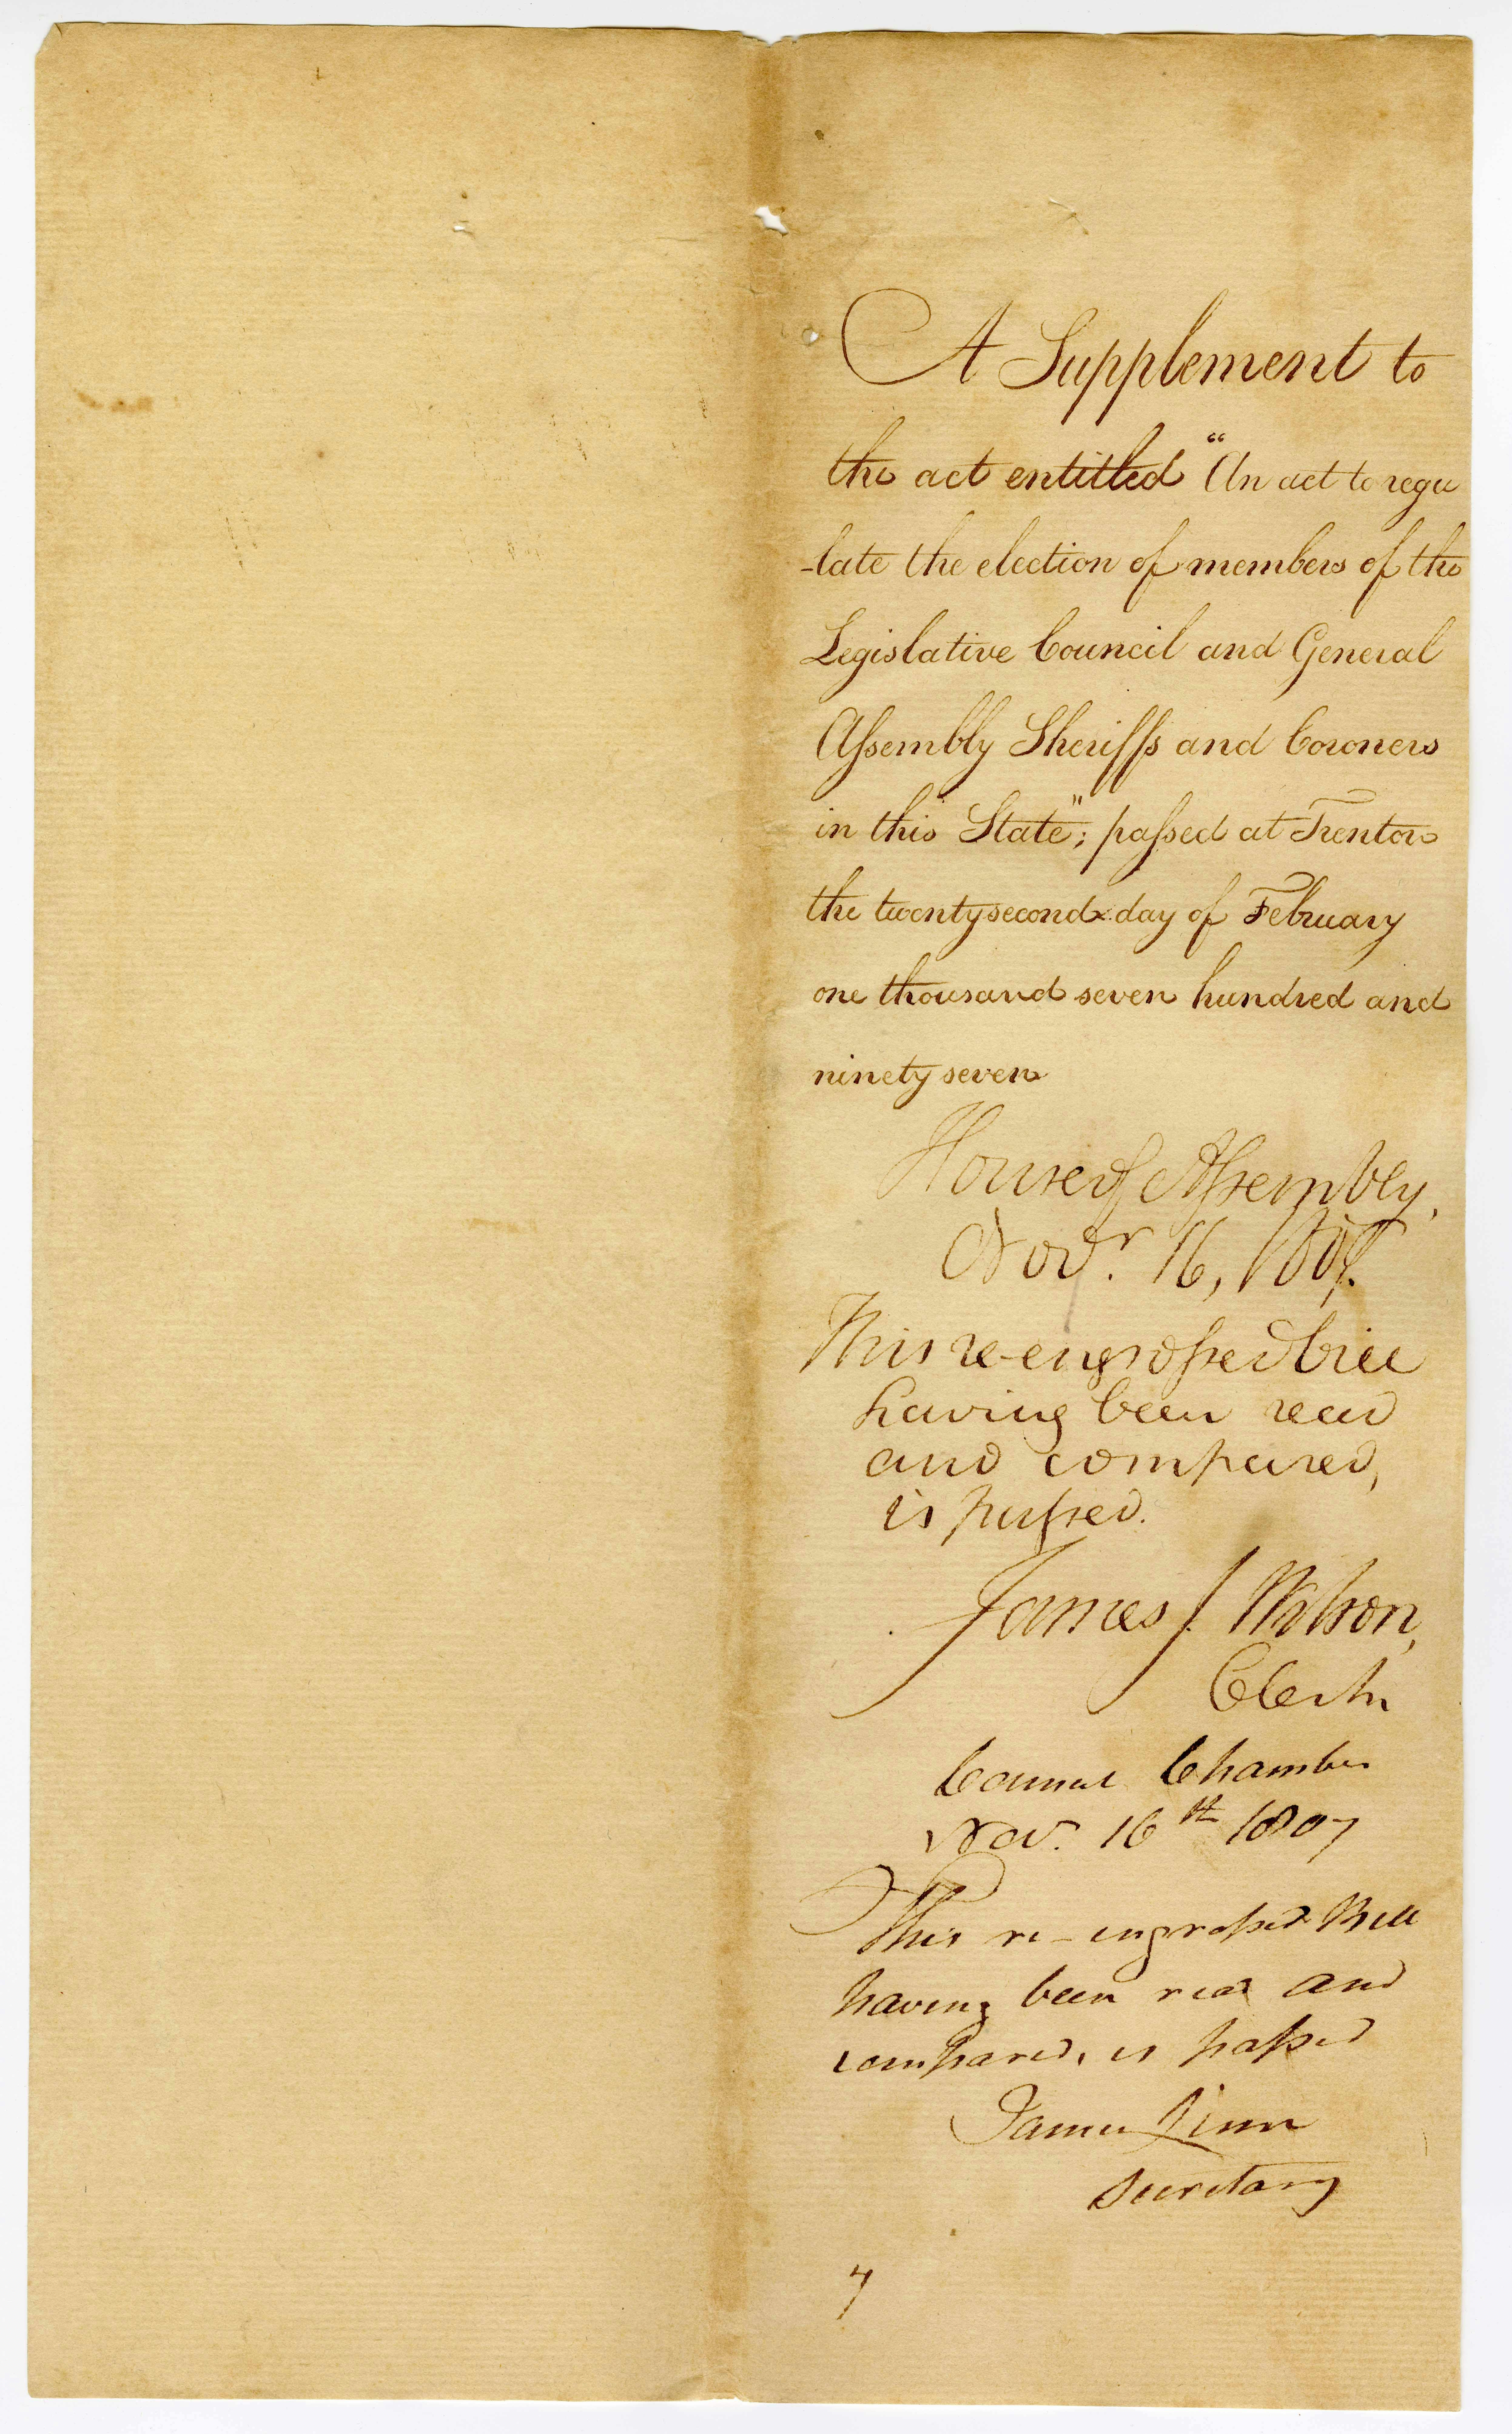 A Supplement to
the act entitled "An act to regu
-late the election of members of the
Legislative Council and General
Aſsembly Sheriffs and Coroners
in this State"; paſsed at Trenton
the twentysecond day of February
one thousand seven hundred and
ninety seven
House of Aſsembly,
Novr. 16, 1807.
This re-engroſsed bill
having been read
and compared,
is paſsed.
James J. Wilson,
Clerk
Council Chamber
Nov. 16th 1807
This re-engroſsed Bill
having been read and
compared, is paſsed
James Linn
Secretary
7